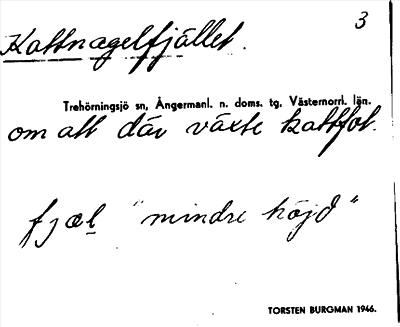 3
Kattnagelfjället.
Trehörningsjö sn, Ångermanl. n. doms. tg. Västernorrl. län.
om att där växte kattfot.
fjæl "mindre höjd"
TORSTEN BURGMAN 1946.